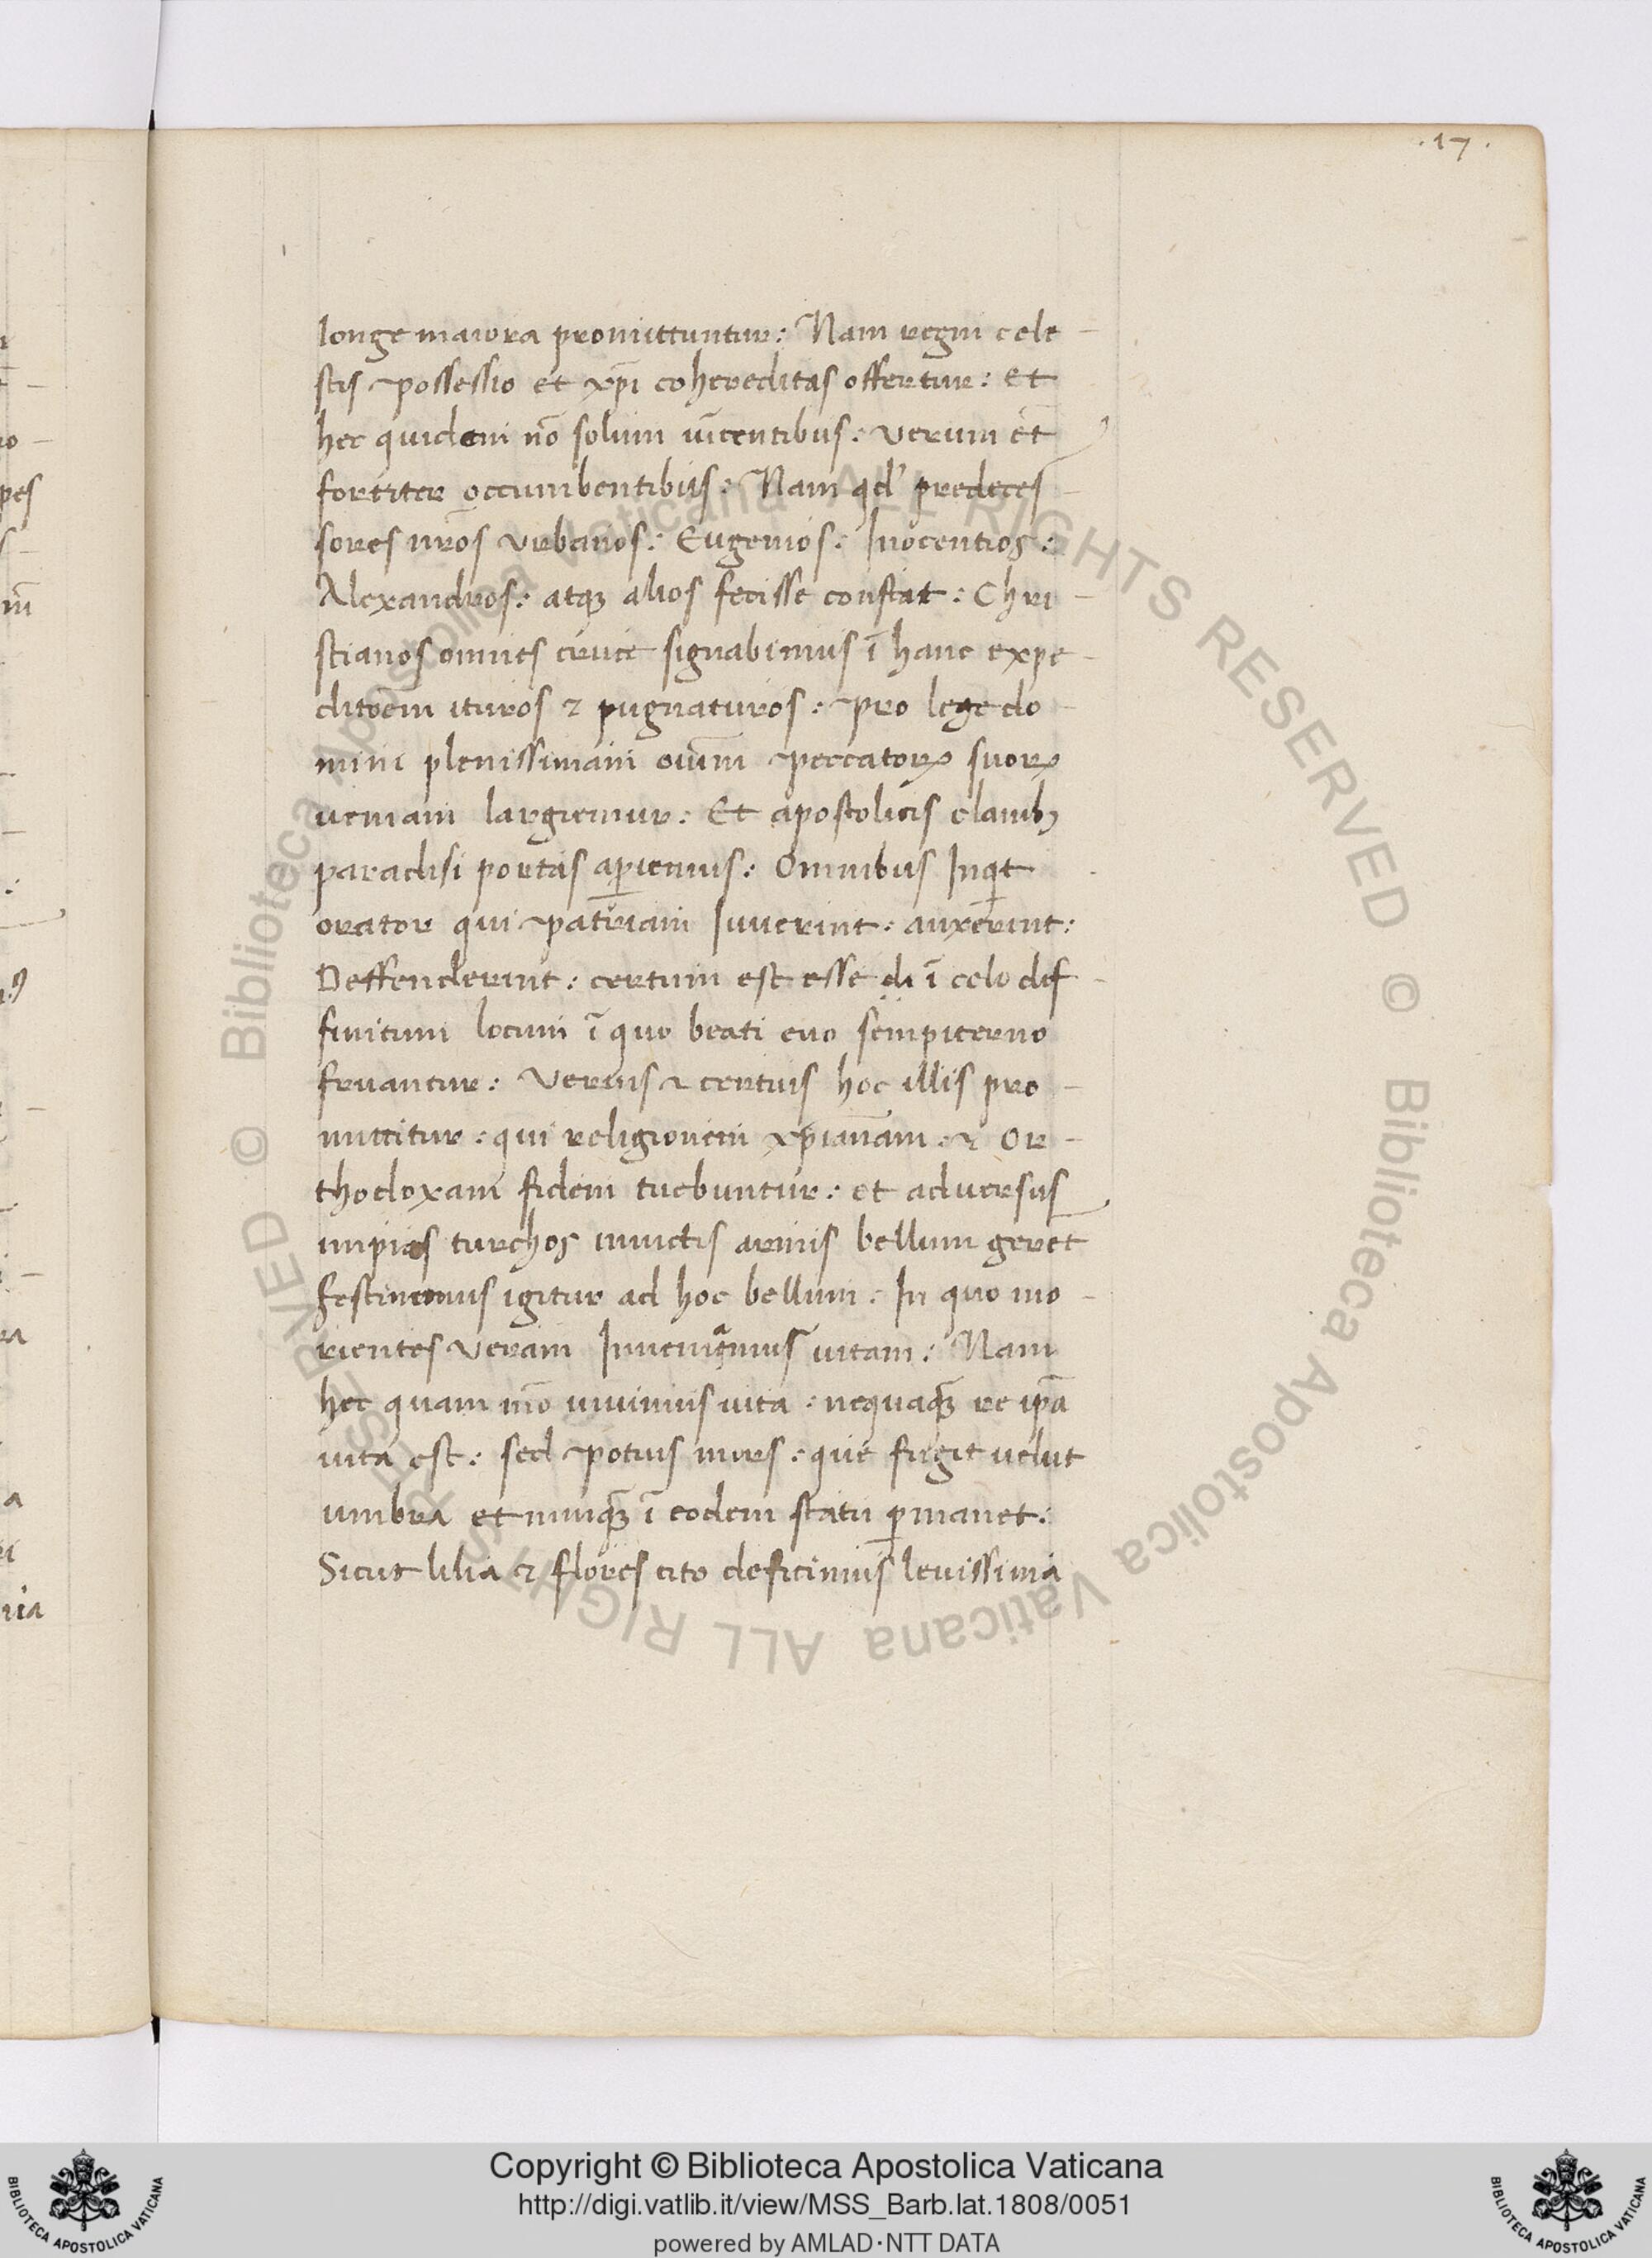 .17.
longe maiora promittuntur: Nam regni cele-
stis possessio et xp̄i cohereditas offertur: et
hec quidem nō solum vīcentibus: verum et̄
fortiter occumbentibus: Nam qd' predeces-
sores nr̄os Vrbanos: Eugenios: Inocentios:
Alexandros: atqꝫ alios fecisse constat: Chri-
stianos omnes cruce signabimus ī hanc expe-
ditōem ituros ⁊ pugnaturos: pro lege do-
mini plenissimam oīum peccatorꝝ suorꝝ
ueniam largiemur: Et apostolicis clauibꝫ
paradisi portas aꝑiemus: Omnibus Inqt
orator qui patriam Iuuerint: auxerint:
Deffenderint: certum est esse di ī celo dif-
finitum locum ī quo beati euo sempiterno
fruantur: Verius ⁊ certius hoc illis pro-
mittitur: qui religionem xp̄ianam ⁊ Or-
thodoxam fidem tuebuntur: et aduersus
impios turchos inuictis armis bellum gerēt
festinemus igitur ad hoc bellum: In quo mo-
rientes veram Inueniamus vitam: Nam
hec quam mō viuimus uita: nequaqꝫ re ip̄a
uita est: sed potius mors: que fugit uelut
umbra et nunqꝫ ī eodem statu ꝑmanet:
Sicut lilia ⁊ flores cito deficimus leuissima
© Biblioteca Apostolica Vaticana ALL RIGHTS RESERVED © Biblioteca Apostolica Vaticana ALL RIGHTS RESERVED
Copyright © Biblioteca Apostolica Vaticana
http://digi.vatlib.it/view/MSS_Barb.lat.1808/0051
powered by AMLAD·NTT DATA
BIBLIOTECA APOSTOLICA VATICANA
BIBLIOTECA APOSTOLICA VATICANA